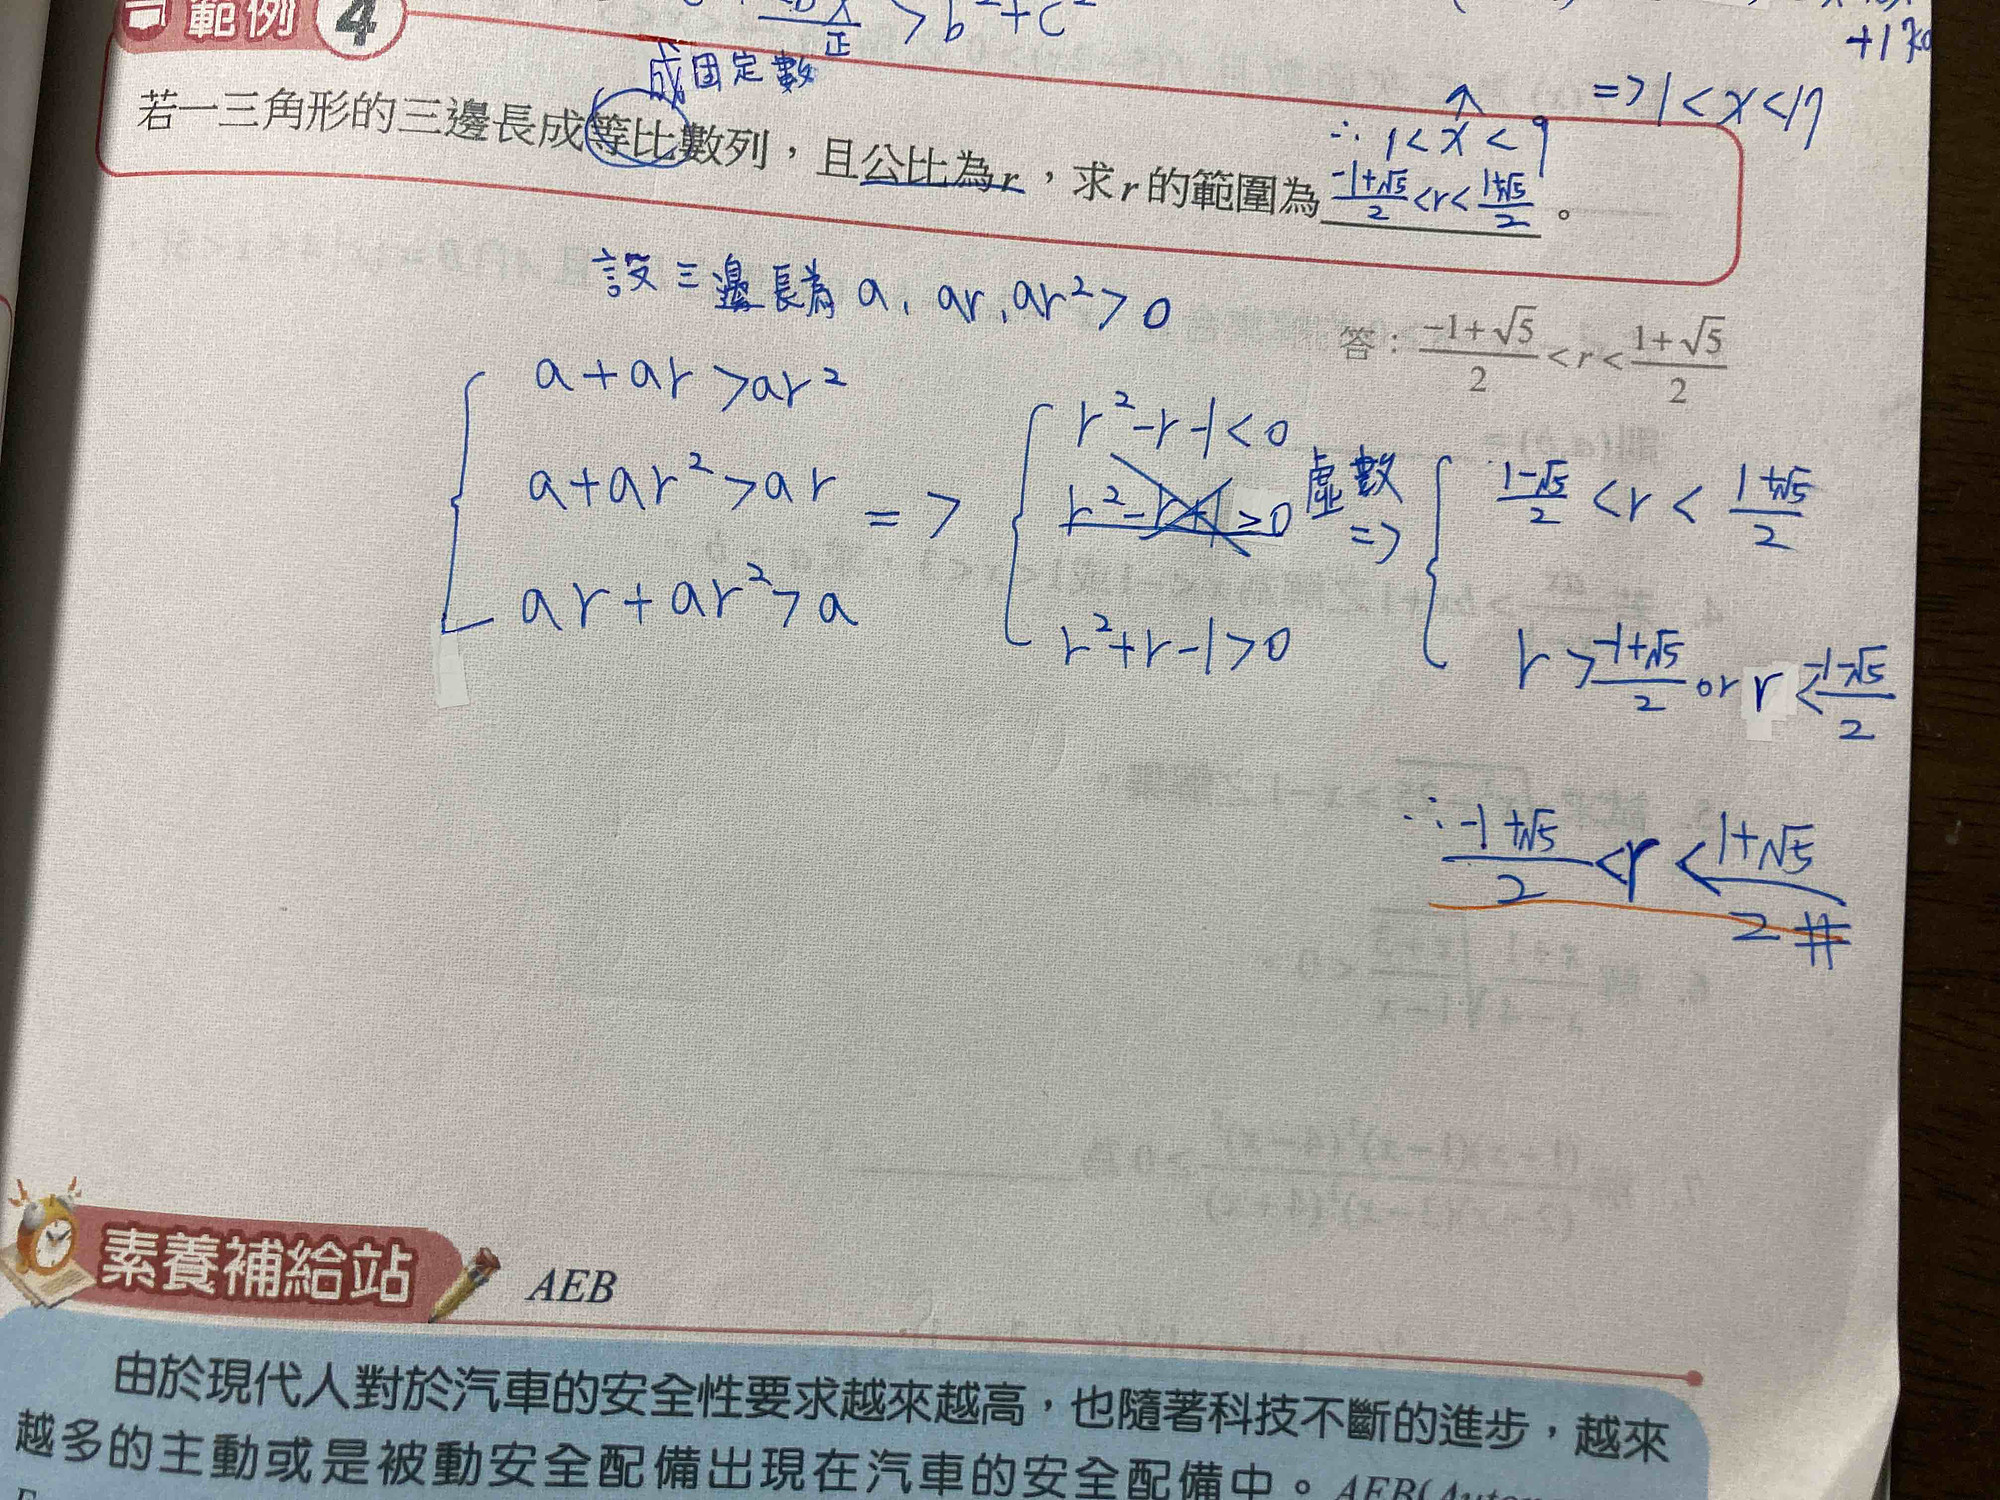 範例 4
> b²+c²
正
成固定數
+1 > 0
=> 1<x<17
∴ 1<x<9
若一三角形的三邊長成等比數列，且公比為r，求r的範圍為 (-1+√5)/2 <r< (1+√5)/2 。
設三邊長為 a, ar, ar²>0
答：(-1+√5)/2 < r < (1+√5)/2
a+ar>ar²
a+ar²>ar
ar+ar²>a
=>
r²-r-1<0
r²-r+1>0 虛數
r²+r-1>0
=>
(1-√5)/2 <r< (1+√5)/2
r> (-1+√5)/2 or r< (-1-√5)/2
∴ (-1+√5)/2 <r< (1+√5)/2 #
素養補給站 AEB
由於現代人對於汽車的安全性要求越來越高，也隨著科技不斷的進步，越來
越多的主動或是被動安全配備出現在汽車的安全配備中。AEB(Auton